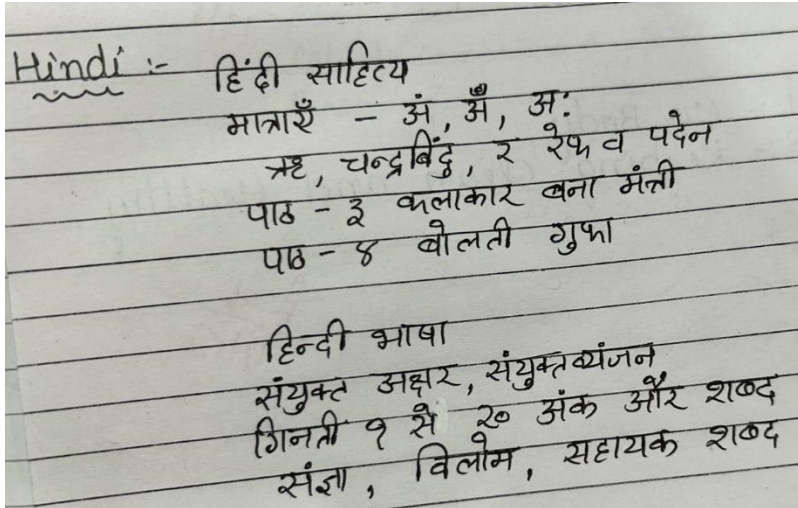 Hindi :- हिंदी साहित्य
मात्राएँ - अं, अँ, अः
ऋ, चन्द्रबिंदु, र रेफ व पदेन
पाठ - ३ कलाकार बना मंत्री
पाठ - ४ बोलती गुफा
हिन्दी भाषा
संयुक्त अक्षर, संयुक्त व्यंजन
गिनती १ से २० अंक और शब्द
संज्ञा, विलोम, सहायक शब्द